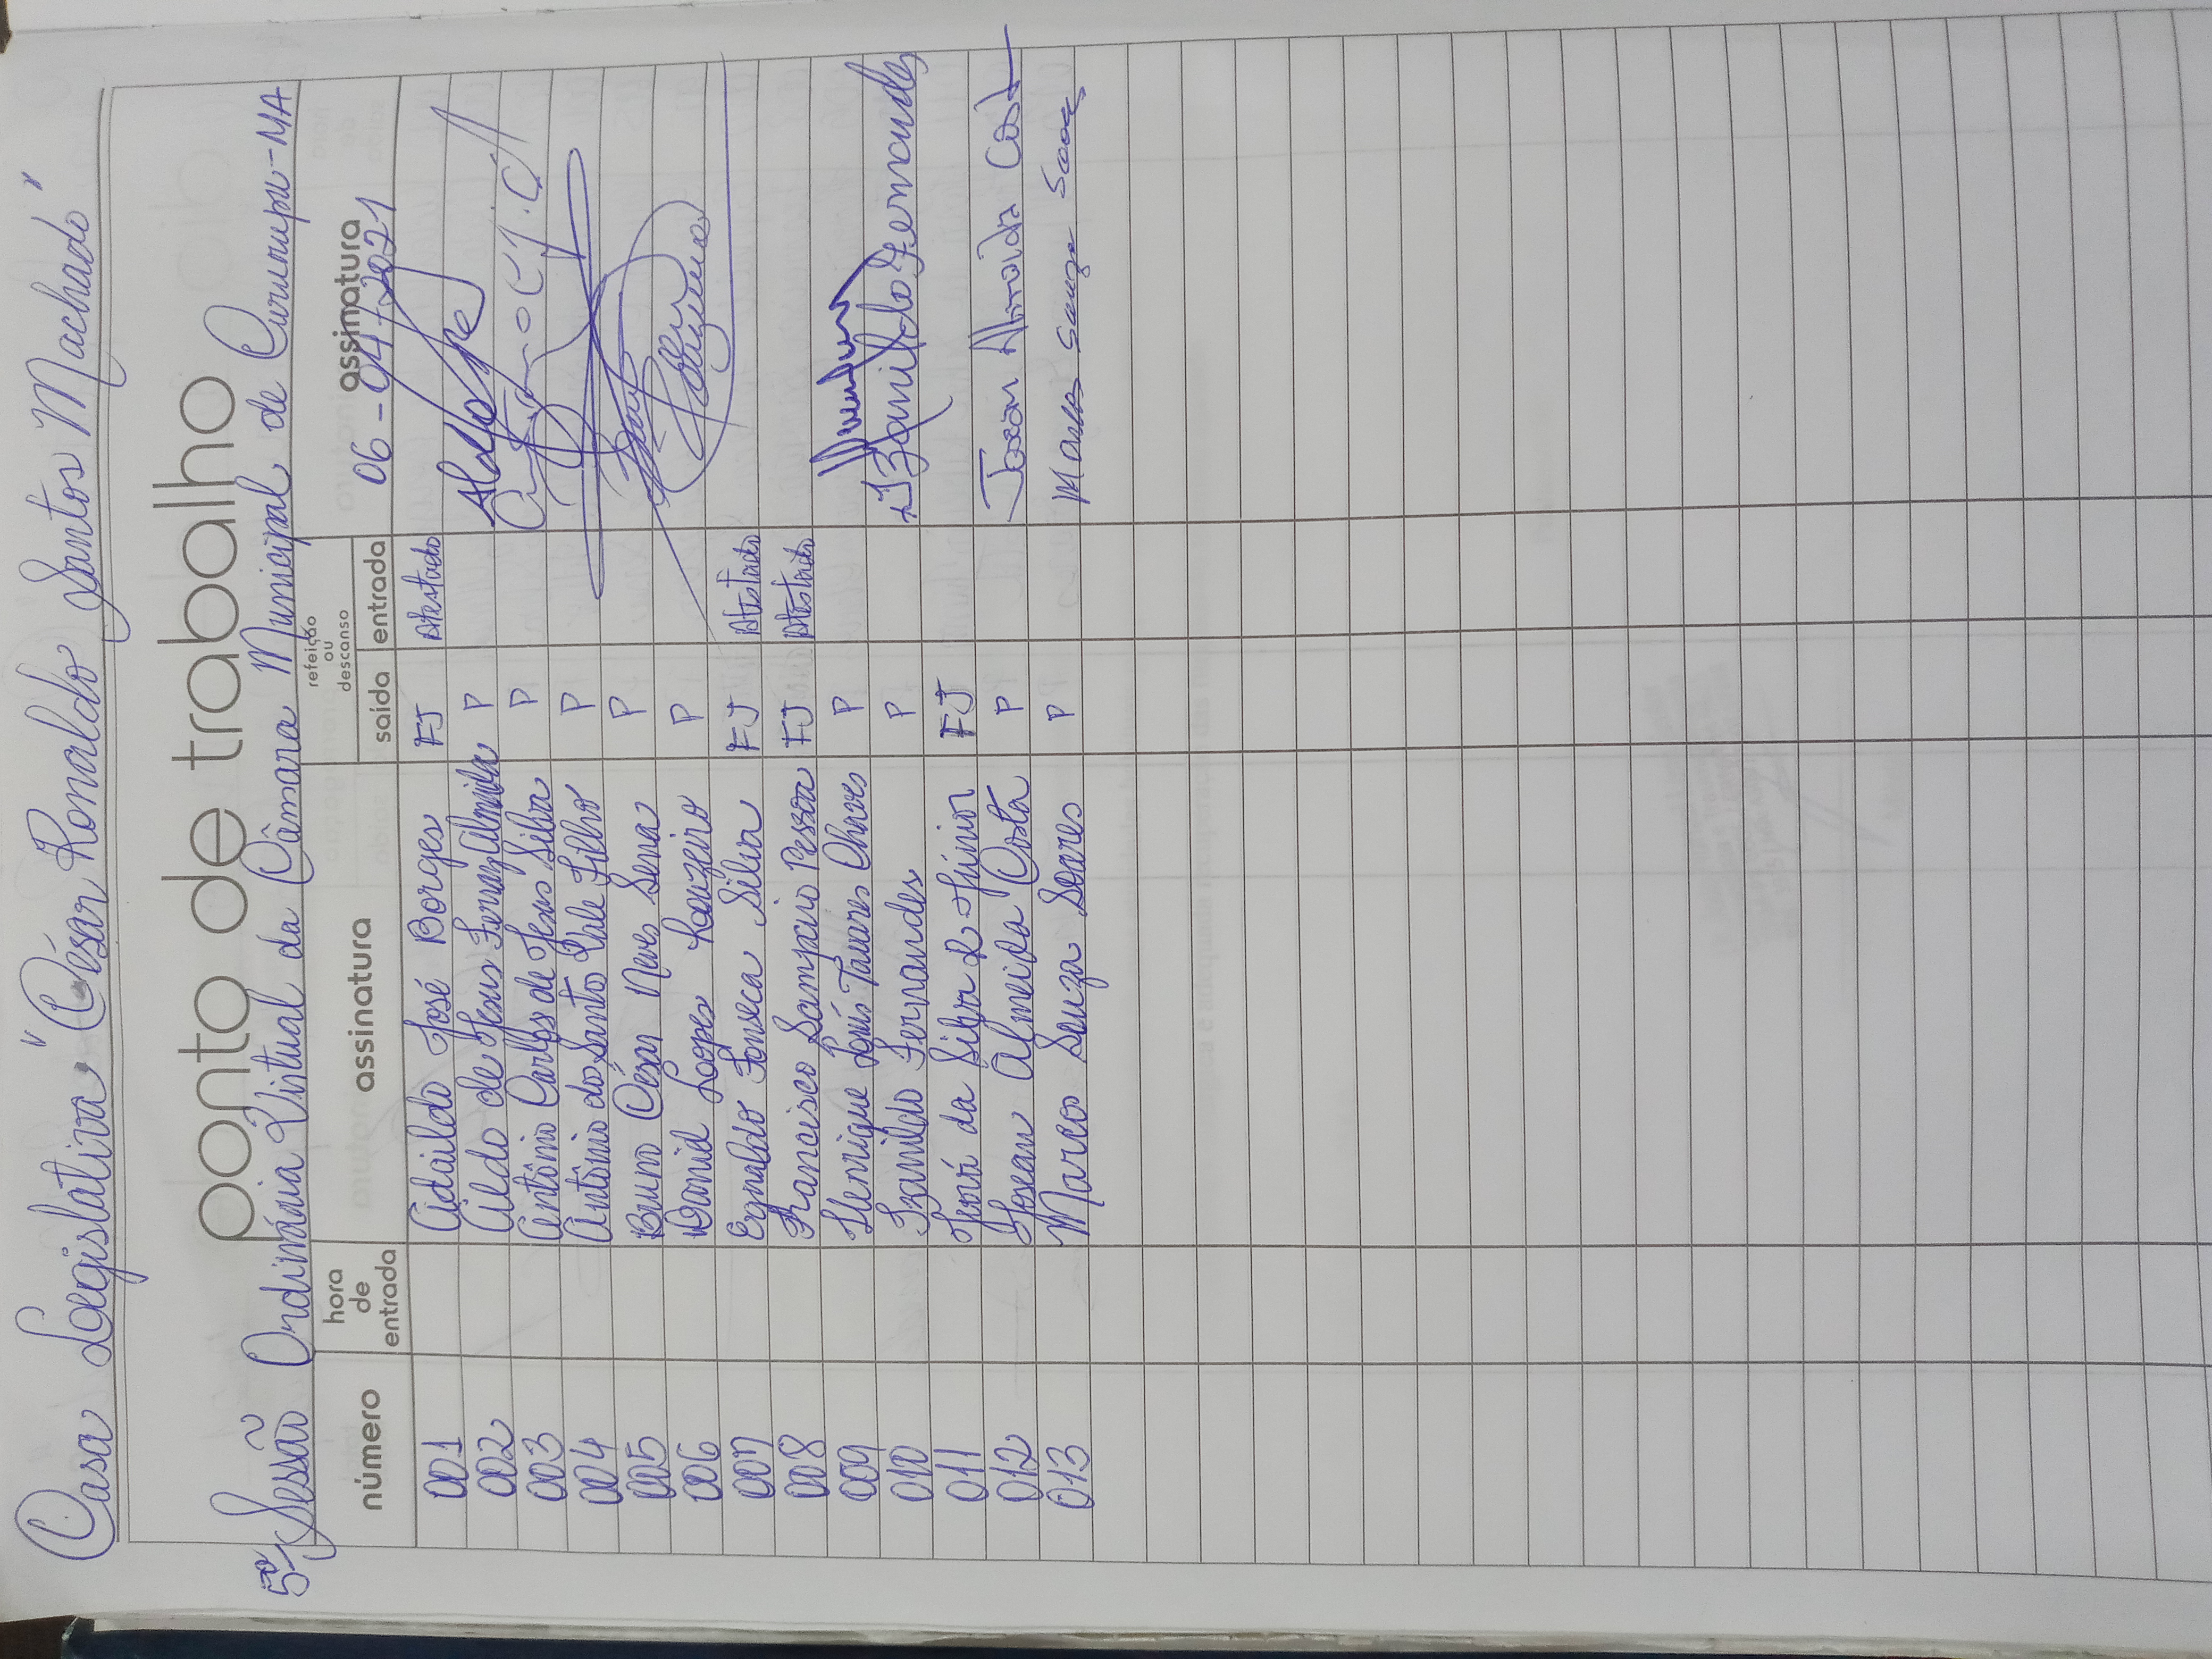 Casa Legislativa "César Ronaldo Santos Machado"
ponto de trabalho
5ª Sessão Ordinária Virtual da Câmara Municipal de Cururupu-MA
número hora de entrada assinatura refeição ou descanso saída entrada assinatura
06-04-2021
001 Adaildo José Borges FJ Atestado
002 Aldo de Jesus Ferraz Almeida P Aldo
003 Antônio Carlos de Jesus Silva P
004 Antônio do Santo Vale Filho P
005 Bruno César Neves Sena P
006 Daniel Lopes Louzeiro P
007 Egnaldo Fonseca Silva FJ Atestado
008 Francisco Sampaio Pessoa FJ Atestado
009 Henrique Luís Tavares Chaves P
010 Izanildo Fernandes P Izanildo Fernandes
011 da Silva Júnior FJ
012 Josean Almeida Costa P Josean Almeida Cost
013 Marcos Souza Soares P Marcos Souza Soares